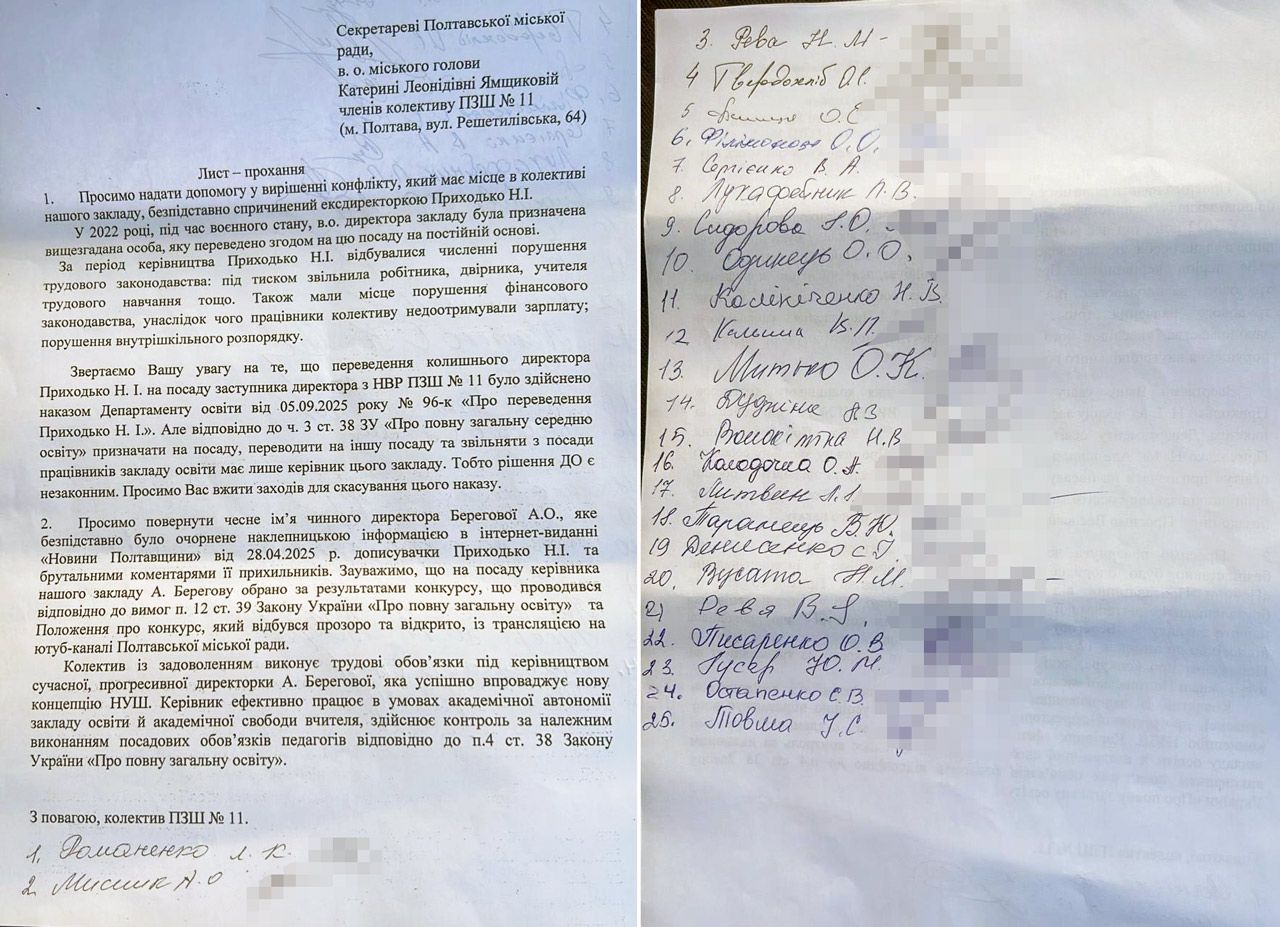 Секретареві Полтавської міської
ради,
в. о. міського голови
Катерині Леонідівні Ямщиковій
членів колективу ПЗШ № 11
(м. Полтава, вул. Решетилівська, 64)
Лист – прохання
1. Просимо надати допомогу у вирішенні конфлікту, який має місце в колективі
нашого закладу, безпідставно спричинений ексдиректоркою Приходько Н.І.
У 2022 році, під час воєнного стану, в.о. директора закладу була призначена
вищезгадана особа, яку переведено згодом на цю посаду на постійній основі.
За період керівництва Приходько Н.І. відбувалися численні порушення
трудового законодавства: під тиском звільнила робітника, двірника, учителя
трудового навчання тощо. Також мали місце порушення фінансового
законодавства, унаслідок чого працівники колективу недоотримували зарплату;
порушення внутрішкільного розпорядку.
Звертаємо Вашу увагу на те, що переведення колишнього директора
Приходько Н. І. на посаду заступника директора з НВР ПЗШ № 11 було здійснено
наказом Департаменту освіти від 05.09.2025 року № 96-к «Про переведення
Приходько Н. І.». Але відповідно до ч. 3 ст. 38 ЗУ «Про повну загальну середню
освіту» призначати на посаду, переводити на іншу посаду та звільняти з посади
працівників закладу освіти має лише керівник цього закладу. Тобто рішення ДО є
незаконним. Просимо Вас вжити заходів для скасування цього наказу.
2. Просимо повернути чесне ім’я чинного директора Берегової А.О., яке
безпідставно було очорнене наклепницькою інформацією в інтернет-виданні
«Новини Полтавщини» від 28.04.2025 р. дописувачки Приходько Н.І. та
брутальними коментарями її прихильників. Зауважимо, що на посаду керівника
нашого закладу А. Берегову обрано за результатами конкурсу, що проводився
відповідно до вимог п. 12 ст. 39 Закону України «Про повну загальну освіту» та
Положення про конкурс, який відбувся прозоро та відкрито, із трансляцією на
ютуб-каналі Полтавської міської ради.
Колектив із задоволенням виконує трудові обов’язки під керівництвом
сучасної, прогресивної директорки А. Берегової, яка успішно впроваджує нову
концепцію НУШ. Керівник ефективно працює в умовах академічної автономії
закладу освіти й академічної свободи вчителя, здійснює контроль за належним
виконанням посадових обов’язків педагогів відповідно до п.4 ст. 38 Закону
України «Про повну загальну освіту».
З повагою, колектив ПЗШ № 11.
1. Романенко Л. К.
2. Мисник А.О
3. Рева Н. М -
4 Твердохліб О.І.
5 О.Є
6. О.О.
7. Сергієнко В. А.
8. В.
9. Сидорова Н.О.
10. Одинець О. О.
11. Калініченко Н. В.
12 В.П.
13. Митько О.К.
14.
15. Н.В
16. Колодочка О. А.
17. Литвин
18. Таранець В.Ю.
19 Денисенко С.Г.
20. Вусата Н.М.
21 Рева В.
22. Писаренко О.В
23. Гусер Ю. М.
24. Остапенко С.В.
25. Товма